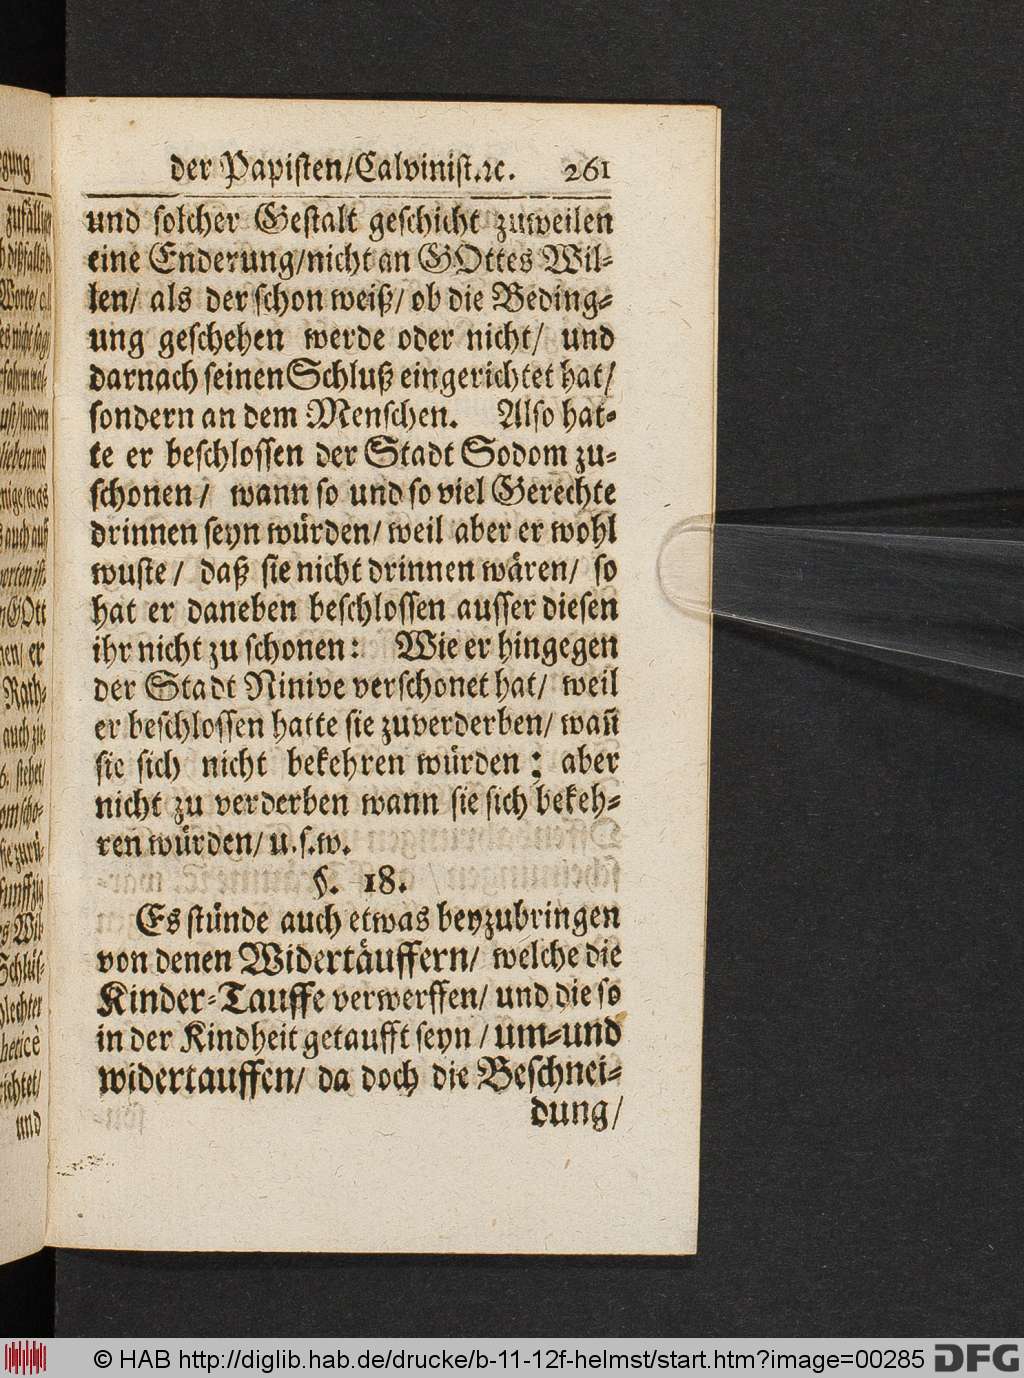 der Papisten/Calvinist.ꝛc. 261
und solcher Gestalt geschicht zuweilen
eine Enderung/nicht an GOttes Wil-
len/ als der schon weiß/ ob die Beding-
ung geschehen werde oder nicht/ und
darnach seinen Schluß eingerichtet hat/
sondern an dem Menschen. Also hat-
te er beschlossen der Stadt Sodom zu-
schonen/ wann so und so viel Gerechte
drinnen seyn würden/ weil aber er wohl
wuste/ daß sie nicht drinnen wären/ so
hat er daneben beschlossen ausser diesen
ihr nicht zu schonen: Wie er hingegen
der Stadt Ninive verschonet hat/ weil
er beschlossen hatte sie zuverderben/ wañ
sie sich nicht bekehren würden; aber
nicht zu verderben wann sie sich bekeh-
ren würden/ u.s.w.
§. 18.
Es stünde auch etwas beyzubringen
von denen Widertäuffern/ welche die
Kinder-Tauffe verwerffen/ und die so
in der Kindheit getaufft seyn/ um-und
widertauffen/ da doch die Beschnei-
dung/
© HAB http://diglib.hab.de/drucke/b-11-12f-helmst/start.htm?image=00285 DFG